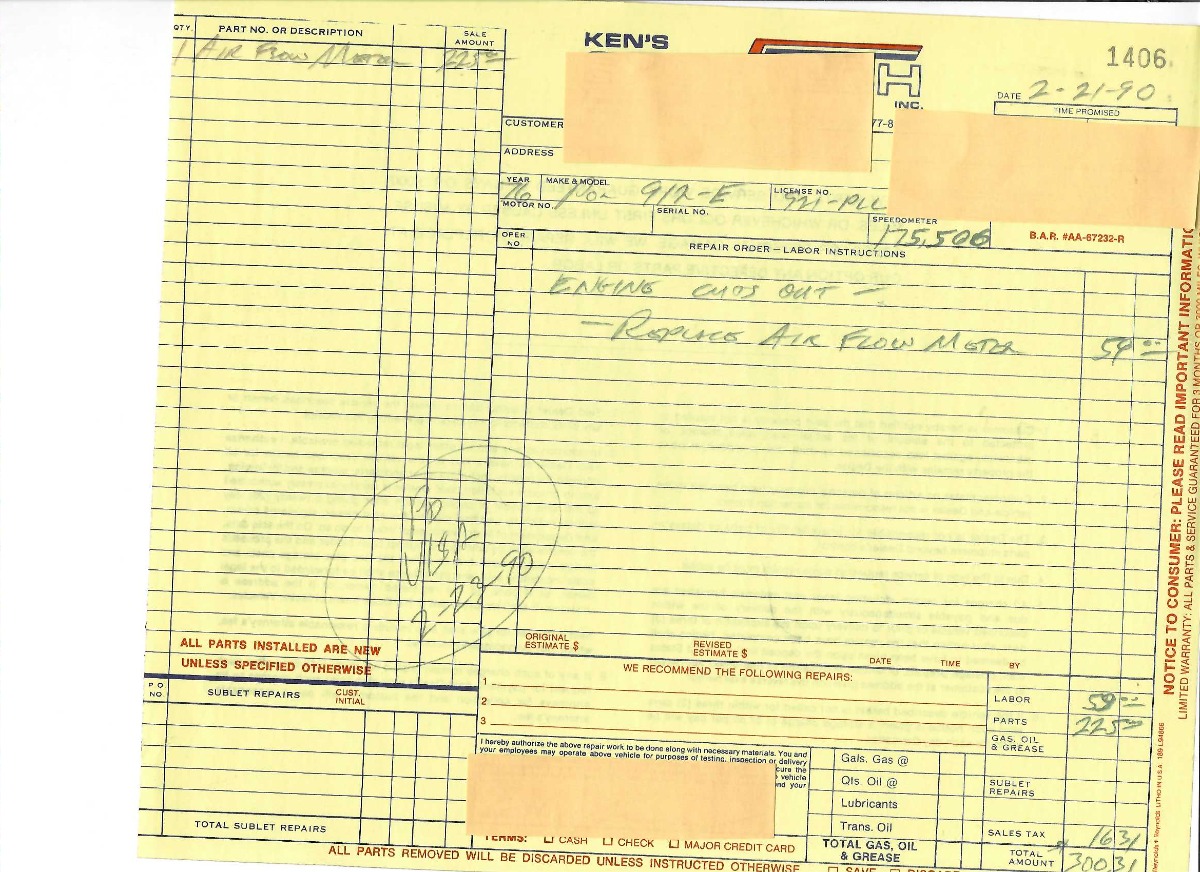 QTY. PART NO. OR DESCRIPTION SALE AMOUNT
1 AIR FLOW METER 225 00
KEN'S
H
INC.
1406
DATE 2-21-90
TIME PROMISED
CUSTOMER
77-8
ADDRESS
YEAR 76 MAKE & MODEL POR 912-E LICENSE NO. 921-PLL
MOTOR NO. SERIAL NO. SPEEDOMETER 175,506
B.A.R. #AA-67232-R
OPER. NO. REPAIR ORDER – LABOR INSTRUCTIONS
ENGINE CUTS OUT –
– REPLACE AIR FLOW METER 59 00
PD
VISA
2-22-90
ALL PARTS INSTALLED ARE NEW
UNLESS SPECIFIED OTHERWISE
ORIGINAL ESTIMATE $ REVISED ESTIMATE $ DATE TIME BY
WE RECOMMEND THE FOLLOWING REPAIRS:
1
2
3
P O NO. SUBLET REPAIRS CUST. INITIAL
TOTAL SUBLET REPAIRS
I hereby authorize the above repair work to be done along with necessary materials. You and
your employees may operate above vehicle for purposes of testing, inspection or delivery
cure the
vehicle
nd your
TERMS: CASH CHECK MAJOR CREDIT CARD
Gals. Gas @
Qts. Oil @
Lubricants
Trans. Oil
TOTAL GAS, OIL & GREASE
LABOR 59 00
PARTS 225 00
GAS, OIL & GREASE
SUBLET REPAIRS
SALES TAX 16 31
TOTAL AMOUNT $ 300 31
ALL PARTS REMOVED WILL BE DISCARDED UNLESS INSTRUCTED OTHERWISE
SAVE DISCARD
NOTICE TO CONSUMER: PLEASE READ IMPORTANT INFORMATIO
LIMITED WARRANTY: ALL PARTS & SERVICE GUARANTEED FOR 3 MONTHS OR
Reynolds + Reynolds LITHO IN U.S.A.